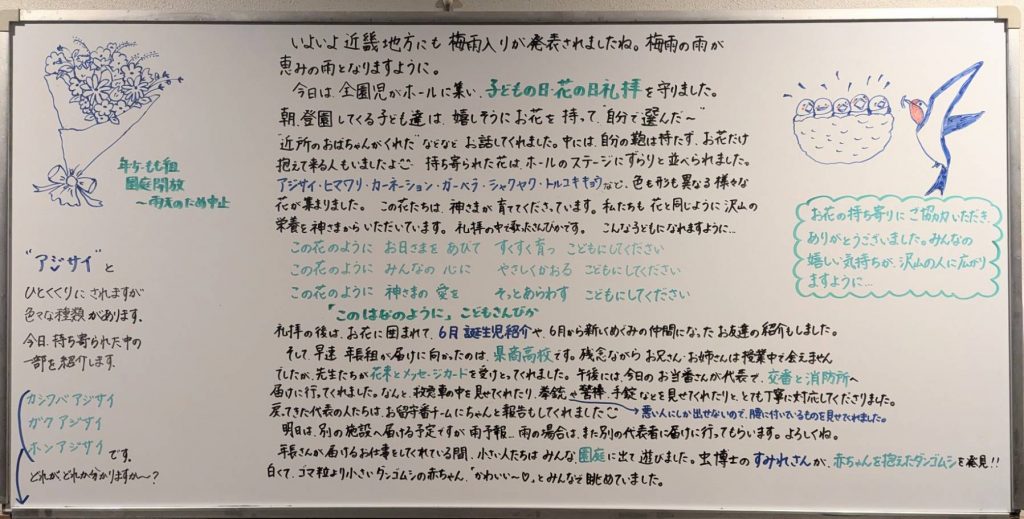 いよいよ近畿地方にも梅雨入りが発表されましたね。梅雨の雨が
恵みの雨となりますように。
今日は、全園児がホールに集い、子どもの日・花の日礼拝を守りました。
朝、登園してくる子ども達は、嬉しそうにお花を持って、"自分で選んだ~"
"近所のおばちゃんがくれた"などなどお話してくれました。中には、自分の鞄は持たず、お花だけ
抱えて来る人もいましたよ 持ち寄られた花は、ホールのステージにずらりと並べられました。
アジサイ・ヒマワリ・カーネーション・ガーベラ・シャクヤク・トルコキキョウなど、色も形も異なる様々な
花が集まりました。 この花たちは、神さまが育ててくださっています。私たちも花と同じように沢山の
栄養を神さまからいただいています。礼拝の中で歌ったさんびかです。 こんな子どもになれますように…
この花のように お日さまをあびて すくすく育つ こどもにしてください
この花のように みんなの心に やさしくかおる こどもにしてください
この花のように 神さまの愛を そっとあらわす こどもにしてください
「このはなのように」こどもさんびか
礼拝の後は、お花に囲まれて、6月誕生児紹介や、6月から新しくめぐみの仲間になったお友達の紹介もしました。
そして、早速 年長組が届けに向かったのは、県商高校です。残念ながらお兄さん・お姉さんは授業中で会えません
でしたが、先生たちが花束とメッセージカードを受けとってくれました。午後には、今日のお当番さんが代表で、交番と消防所へ
届けに行ってくれました。なんと、救急車の中を見せてくれたり、拳銃や警棒、手錠などを見せてくれたりと、とても丁寧に対応してくださりました。
戻ってきた代表の人たちは、お留守番チームにちゃんと報告もしてくれました
悪い人にしか出せないので、腰に付いているものを見せてくれました。
明日は、別の施設へ届ける予定ですが雨予報…雨の場合は、また別の代表者に届けに行ってもらいます。よろしくね。
年長さんが届けるお仕事をしてくれている間、小さい人たちはみんな園庭に出て遊びました。虫博士のすみれさんが、赤ちゃんを抱えたダンゴムシを発見!!
白くて、ゴマ粒より小さいダンゴムシの赤ちゃん。「かわいい~♡」とみんなで眺めていました。
年少・もも組
園庭開放
~雨天のため中止
"アジサイ"と
ひとくくりにされますが
色々な種類があります。
今日、持ち寄られた中の
一部を紹介します。
カシワバアジサイ
ガクアジサイ
ホンアジサイ です。
どれが、どれか分かりますか~?
お花の持ち寄りにご協力いただき、
ありがとうございました。みんなの
嬉しい気持ちが、沢山の人に広がり
ますように…